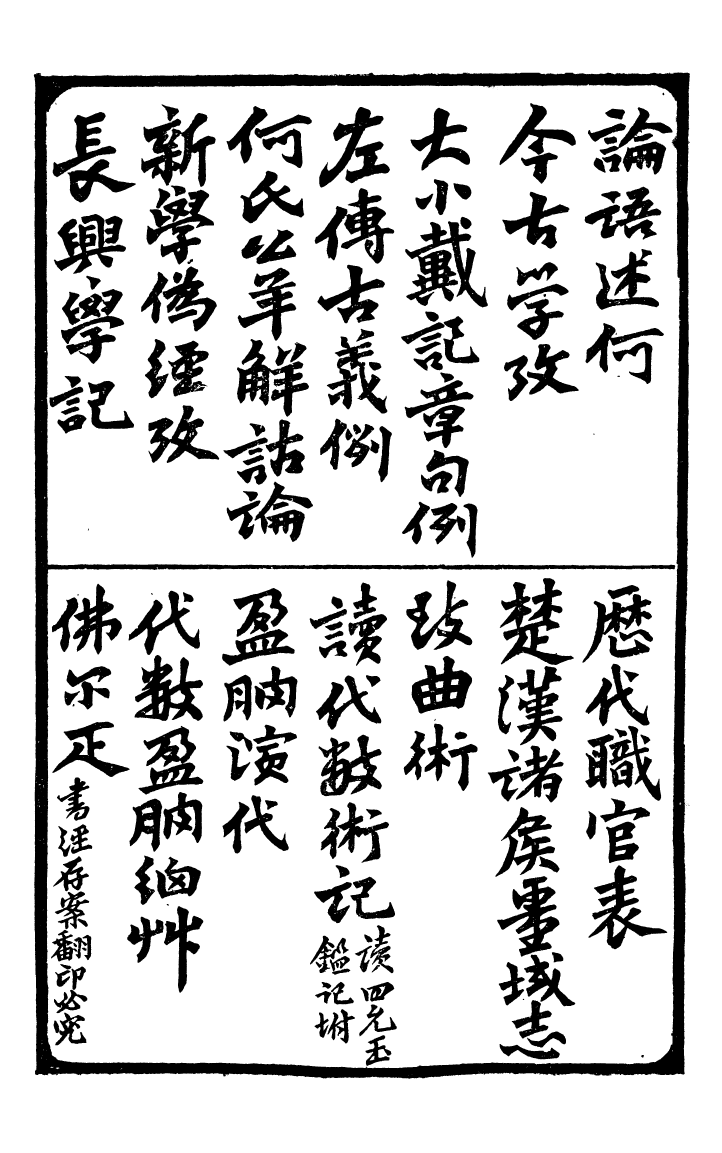 論語述何
今古学攷
大小戴記章句例
左傳古義例
何氏公羊解詁論
新學偽經攷
長興學記
歷代職官表
楚漢諸矦畺域志
攷曲術
讀代數術記 讀四元玉鑑記坿
盈朒演代
代數盈朒細艸
佛尔疋 書經存案翻印必究